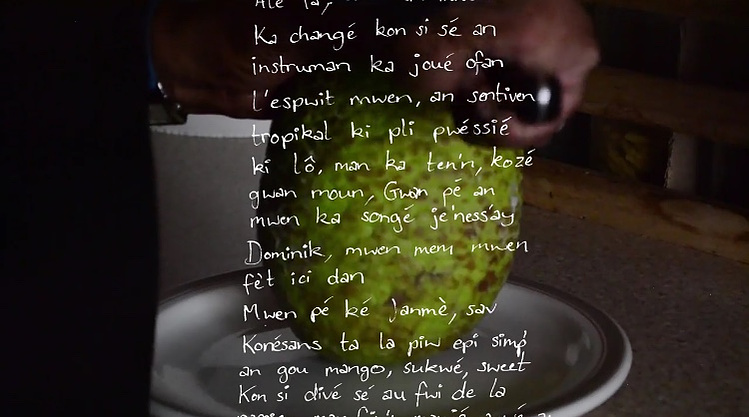 Ka changé kon si sé an
instruman ka joué ofan
l'espwit mwen, an sentiven
tropikal ki pli pwéssié
ki lô, man ka ten'n, kozé
gwan moun, Gwan pé an
mwen ka songé je'ness'ay
Dominik, mwen mem mwen
fèt ici dan
Mwen pé ké Janmè, sav
Konésans ta la piw epi simp
an gou mango, sukwé, sweet
Kon si divé sé au fwi de la